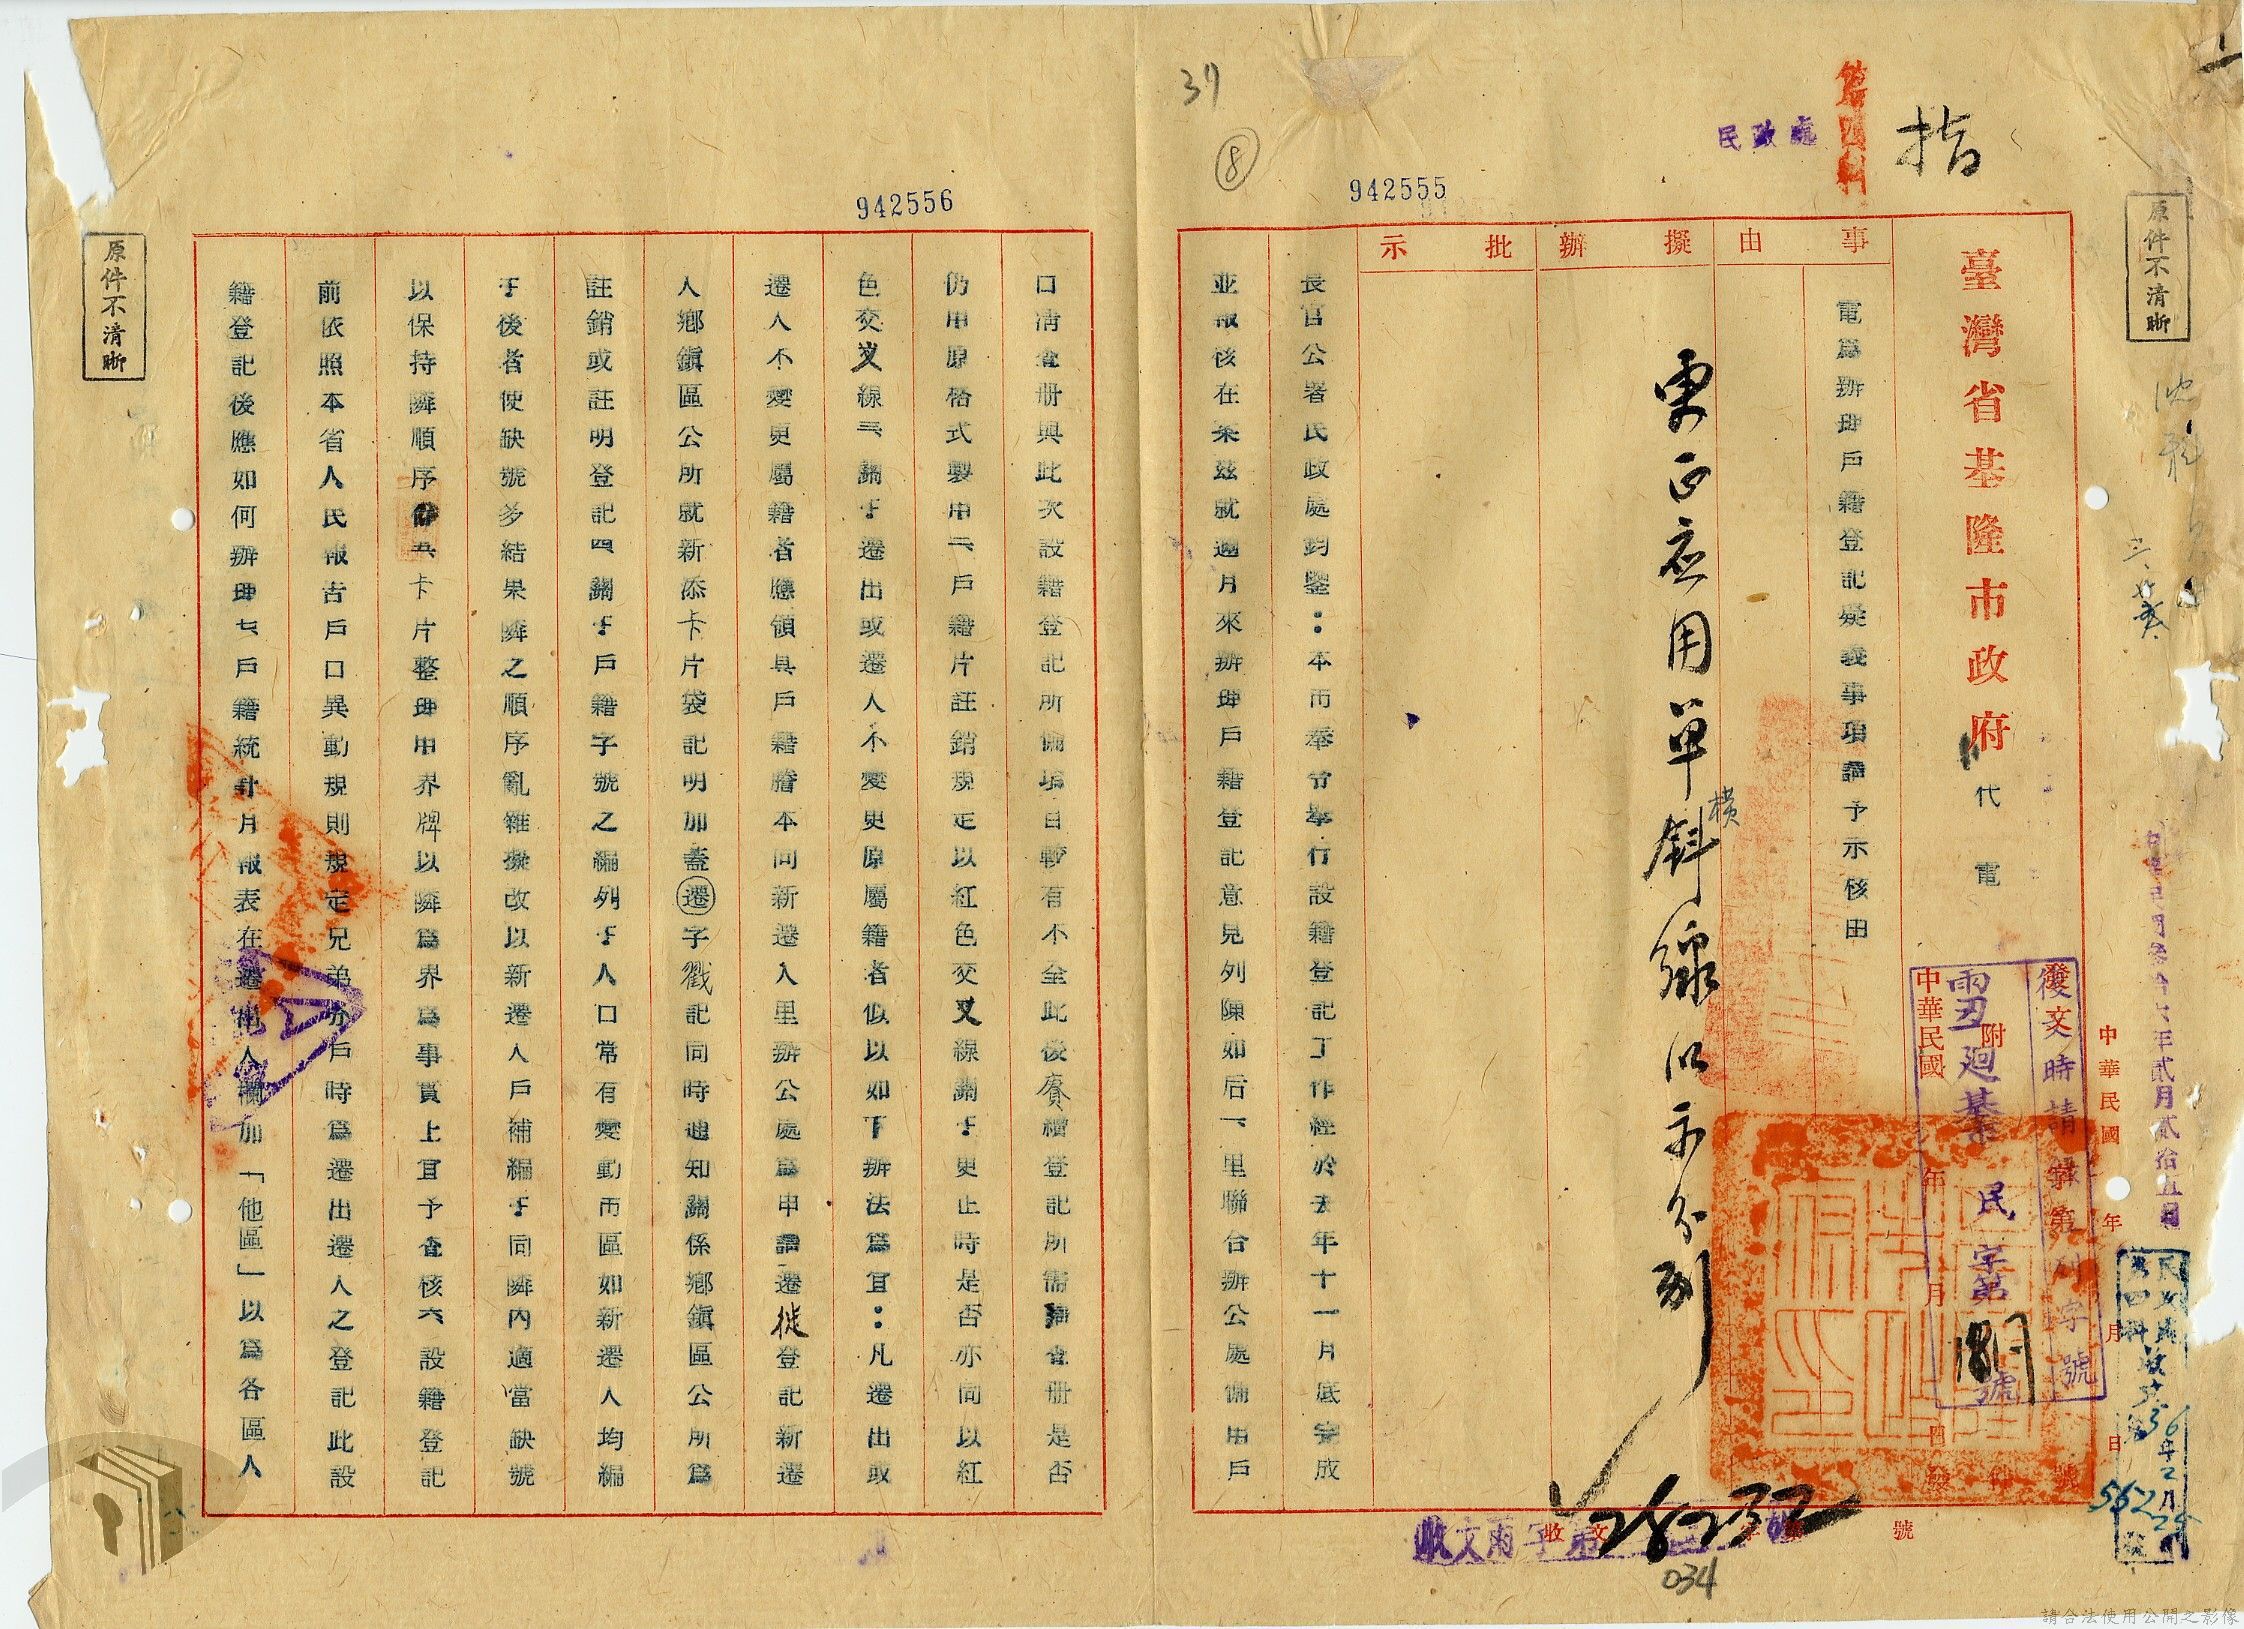 指
第四科
民政處
37
8
942555
原件不清晰
臺灣省基隆市政府代電
事由
擬辦
批示
電為辦理戶籍登記疑義事項請予示核由
更正應用單橫斜線以示分別
長官公署民政處鈞鑒：本市奉令舉行設籍登記工作經於去年十一月底完成
並報核在案茲就邇月來辦理戶籍登記意見列陳如后一、里聯合辦公處備用戶
中華民國 年 月 日
發文時請 列字第 字號
附
民字第 號
中華民國 年 月 日
收文 字第 號
收文兩字第 號
28232
034
562
942556
口清查冊與此次設籍登記所備項目較有不全此後賡續登記所需清查冊是否
仍用原格式製用二、戶籍片註銷規定以紅色交叉線關于更正時是否亦同以紅
色交叉線三、關于遷出或遷入不變更原屬籍者似以如下辦法為宜：凡遷出或
遷入不變更屬籍者應領具戶籍謄本向新遷入里辦公處為申請遷徙登記新遷
入鄉鎮區公所就新添卡片袋記明加蓋遷字戳記同時通知關係鄉鎮區公所為
註銷或註明登記四、關于戶籍字號之編列于人口常有變動市區如新遷入均編
于後者使缺號多結果隣之順序亂雜擬改以新遷入戶補編于同隣內適當缺號
以保持隣順序 五、卡片整理用界牌以隣為界為事實上宜予查核六、設籍登記
前依照本省人民報告戶口異動規則規定兄弟分戶時為遷出遷入之登記此設
籍登記後應如何辦理七、戶籍統計月報表在遷出入欄加「他區」以為各區人
原件不清晰
請合法使用公開之影像